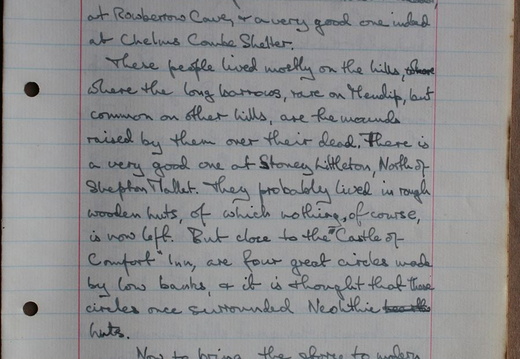 at Rowberrow Cave, & a very good one indeed
at Chelms Combe Shelter.
These people lived mostly on the hills,
where the long barrows, rare on Mendip, but
common on other hills, are the mounds
raised by them over their dead. There is
a very good one at Stoney Littleton, North of
Shepton Mallet. They probably lived in rough
wooden huts, of which nothing, of course,
is now left. But close to the "Castle of
Comfort" Inn, are four great circles made
by low banks, & it is thought that these
circles once surrounded Neolithic
huts.
Now to bring the above to modern